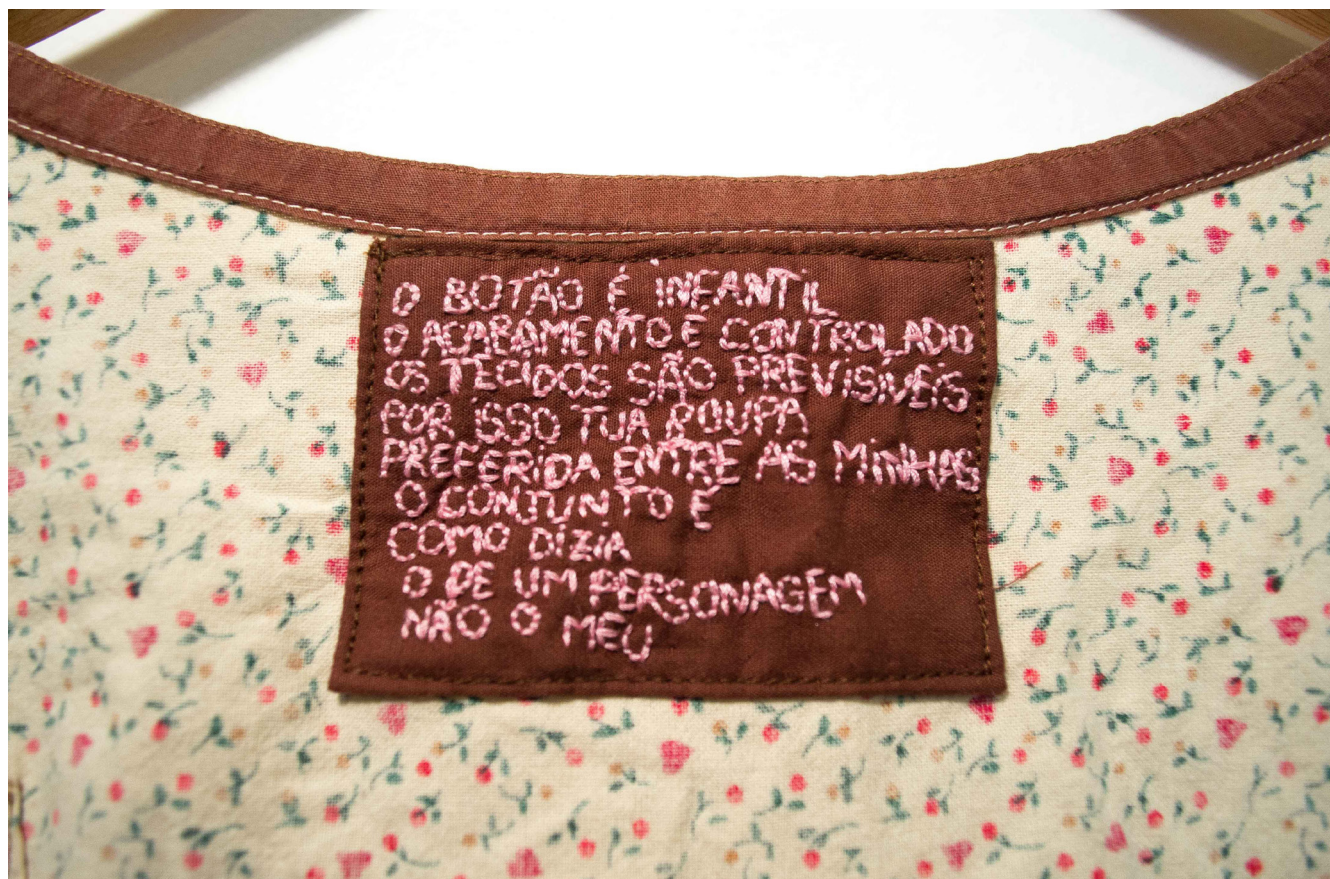 O BOTÃO É INFANTIL
O ACABAMENTO É CONTROLADO
OS TECIDOS SÃO PREVISÍVEIS
POR ISSO TUA ROUPA
PREFERIDA ENTRE AS MINHAS
O CONJUNTO É
COMO DIZIA
O DE UM PERSONAGEM
NÃO O MEU